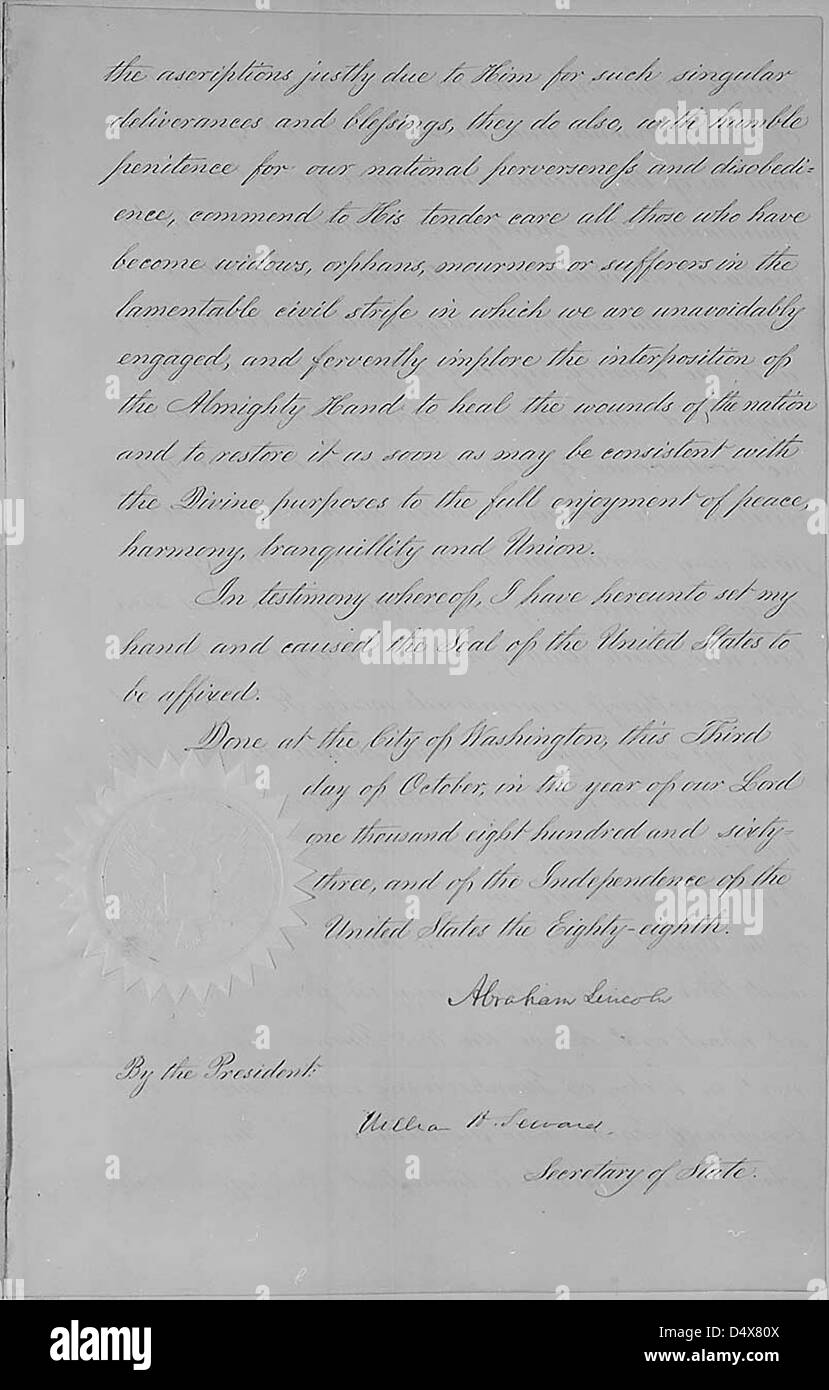 the ascriptions justly due to Him for such singular
deliverances and bleſsings, they do also, with humble
penitence for our national perverseneſs and disobedi=
ence, commend to His tender care all those who have
become widows, orphans, mourners or sufferers in the
lamentable civil strife in which we are unavoidably
engaged, and fervently implore the interposition of
the Almighty Hand to heal the wounds of the nation
and to restore it as soon as may be consistent with
the Divine purposes to the full enjoyment of peace,
harmony, tranquillity and Union.
In testimony whereof, I have hereunto set my
hand and caused the Seal of the United States to
be affixed.
Done at the City of Washington, this Third
day of October, in the year of our Lord
one thousand eight hundred and sixty=
three, and of the Independence of the
United States the Eighty-eighth.
Abraham Lincoln
By the President:
William H. Seward.
Secretary of State.
alamy
alamy
Image ID: D4X80X
www.alamy.com